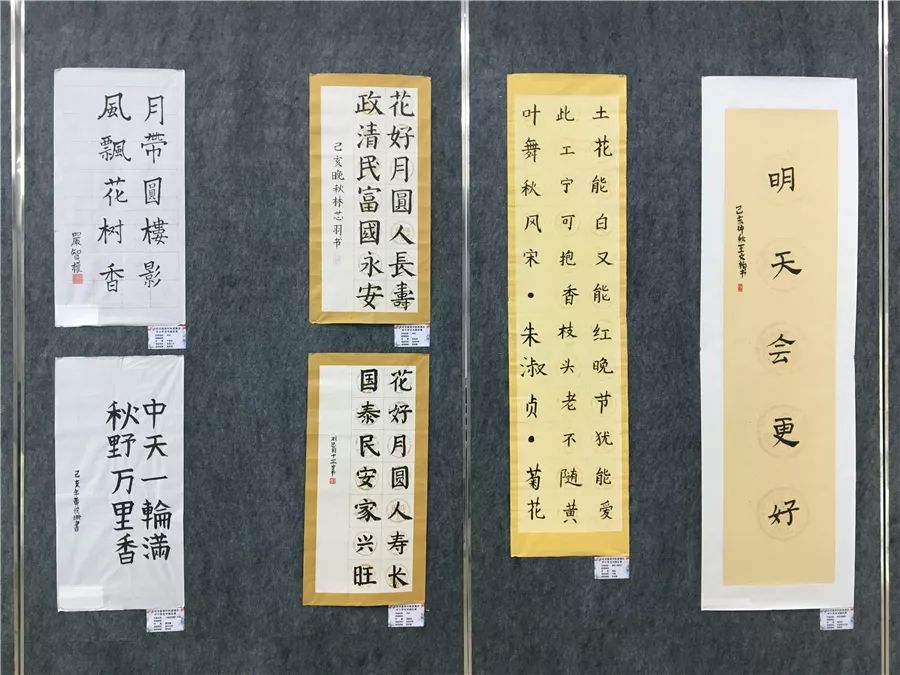 月帶圓樓影
風飄花树香
嚴智權
花好月圓人長壽
政清民富國永安
己亥晚秋林芯羽书
土花能白又能红晚节犹能爱
此工宁可抱香枝头老不随黄
叶舞秋风宋•朱淑贞•菊花
明天会更好
己亥仲秋王文
中天一輪滿
秋野万里香
己亥年
花好月圆人寿长
国泰民安家兴旺